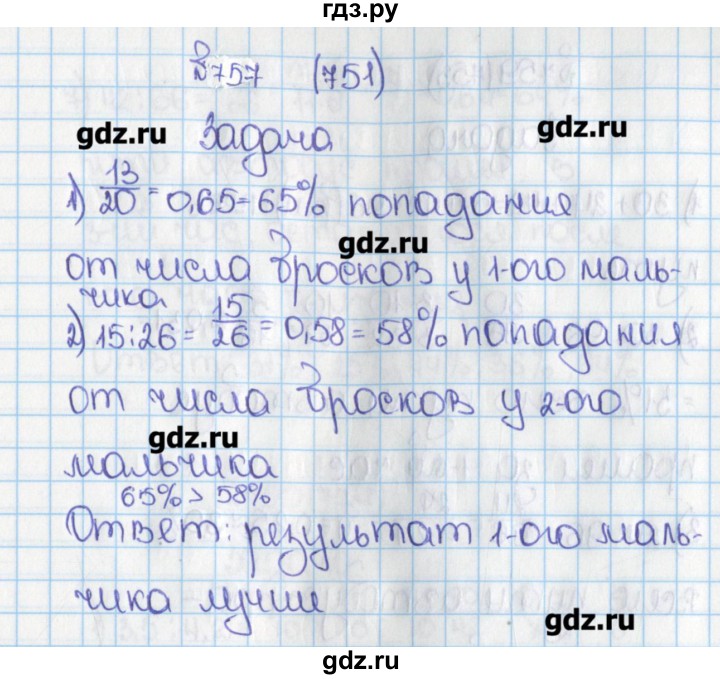 гдз.ру
№757 (751)
gdz.ru
Задача
gdz.ru
1) 13/20 = 0,65 = 65% попадания
gdz.ru
от числа бросков у 1-ого маль-
чика
2) 15:26 = 15/26 = 0,58 = 58% попадания
от числа бросков у 2-ого
gdz.ru
мальчика
65% > 58%
Ответ: результат 1-ого маль-
чика лучши
gdz.ru
gdz.ru